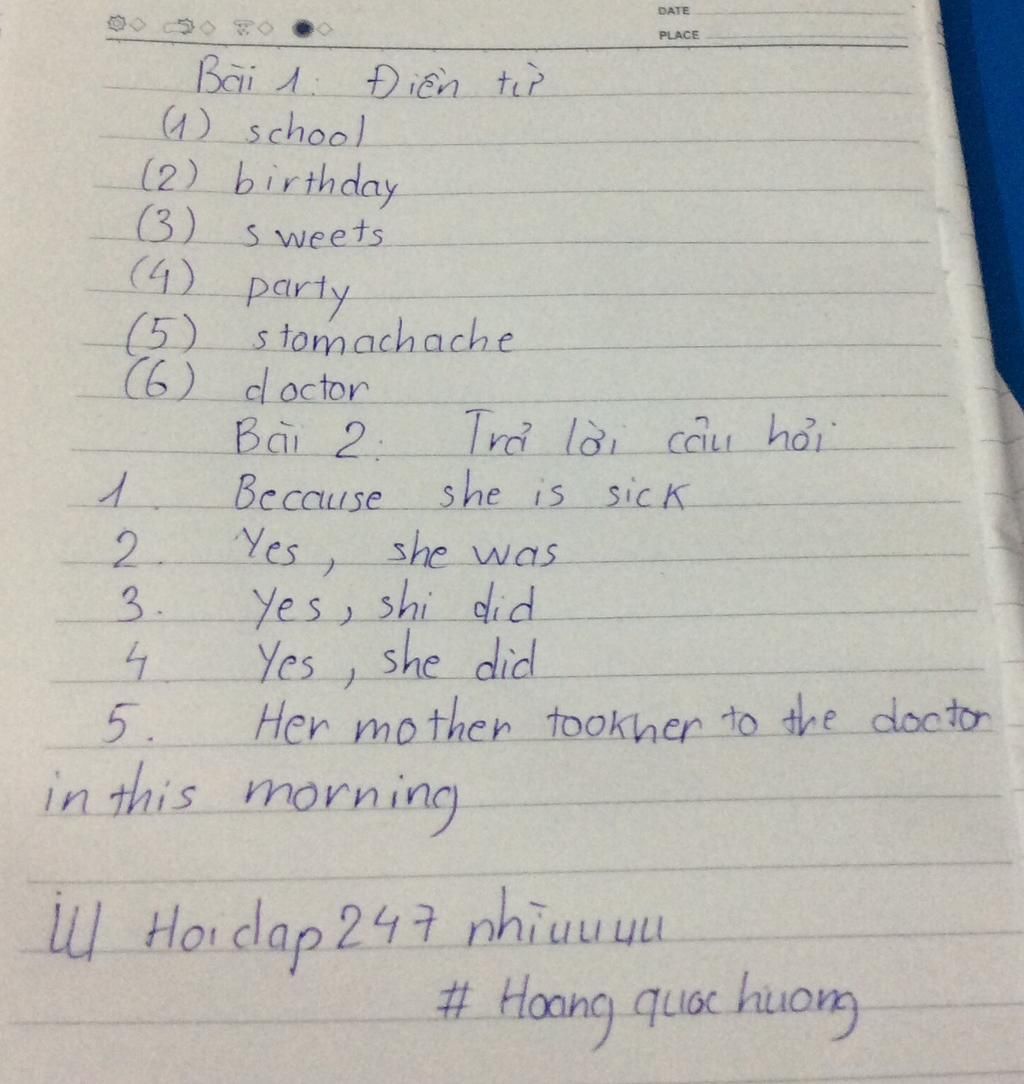 DATE
PLACE
Bài 1: Điền từ
(1) school
(2) birthday
(3) sweets
(4) party
(5) stomachache
(6) doctor
Bài 2: Trả lời câu hỏi
1. Because she is sick
2. Yes, she was
3. Yes, shi did
4 Yes, she did
5. Her mother tookher to the doctor
in this morning
iu Hoidap247 nhìuuuu
# Hoang quoc huong